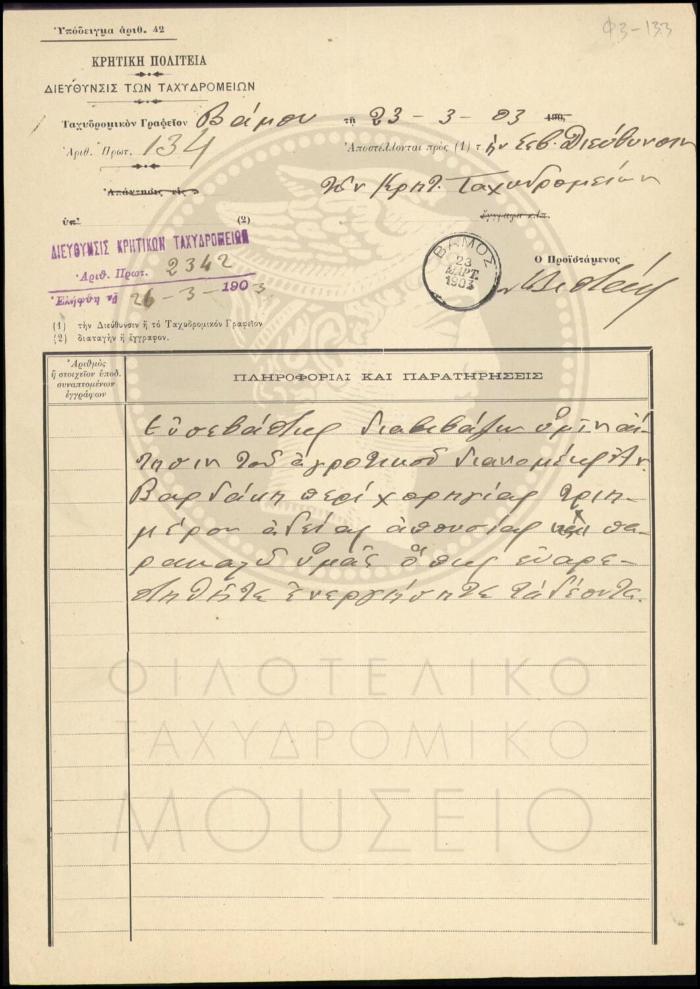 Ὑπόδειγμα ἀριθ. 42
Φ3-133
ΚΡΗΤΙΚΗ ΠΟΛΙΤΕΙΑ
ΔΙΕΥΘΥΝΣΙΣ ΤΩΝ ΤΑΧΥΔΡΟΜΕΙΩΝ
Ταχυδρομικὸν Γραφεῖον Βάμου τῇ 23-3-03 190
Ἀριθ. Πρωτ. 134 Ἀποστέλλονται πρὸς (1) τὴν Σεβ. Διεύθυνσιν
τῶν Κρητ. Ταχυδρομείων
Ἀπάντησις εἰς
ὑπ' (2) ἔγγραφα κ.τ.λ.
ΔΙΕΥΘΥΝΣΙΣ ΚΡΗΤΙΚΩΝ ΤΑΧΥΔΡΟΜΕΙΩΝ
Ἀριθ. Πρωτ. 2342
Ἐλήφθη τῇ 26-3-1903
ΒΑΜΟΣ
23
ΜΑΡΤ.
1903
Ὁ Προϊστάμενος
(1) τὴν Διεύθυνσιν ἢ τὸ Ταχυδρομικὸν Γραφεῖον
(2) διαταγὴν ἢ ἔγγραφον.
Ἀριθμὸς
ἢ στοιχεῖον ὑποδ.
συναπτομένων
ἐγγράφων
ΠΛΗΡΟΦΟΡΙΑΙ ΚΑΙ ΠΑΡΑΤΗΡΗΣΕΙΣ
Εὐσεβάστως διαβιβάζων ὑμῖν αἴ-
τησιν τοῦ ἀγροτικοῦ διανομέως Ἀν.
Βαρδάκη περὶ χορηγίας τριη-
μέρου ἀδείας ἀπουσίας πα-
ρακαλῶ ὑμᾶς ὅπως εὐαρε-
στηθῆτε ἐνεργήσητε τὰ δέοντα.
ΦΙΛΟΤΕΛΙΚΟ
ΤΑΧΥΔΡΟΜΙΚΟ
ΜΟΥΣΕΙΟ